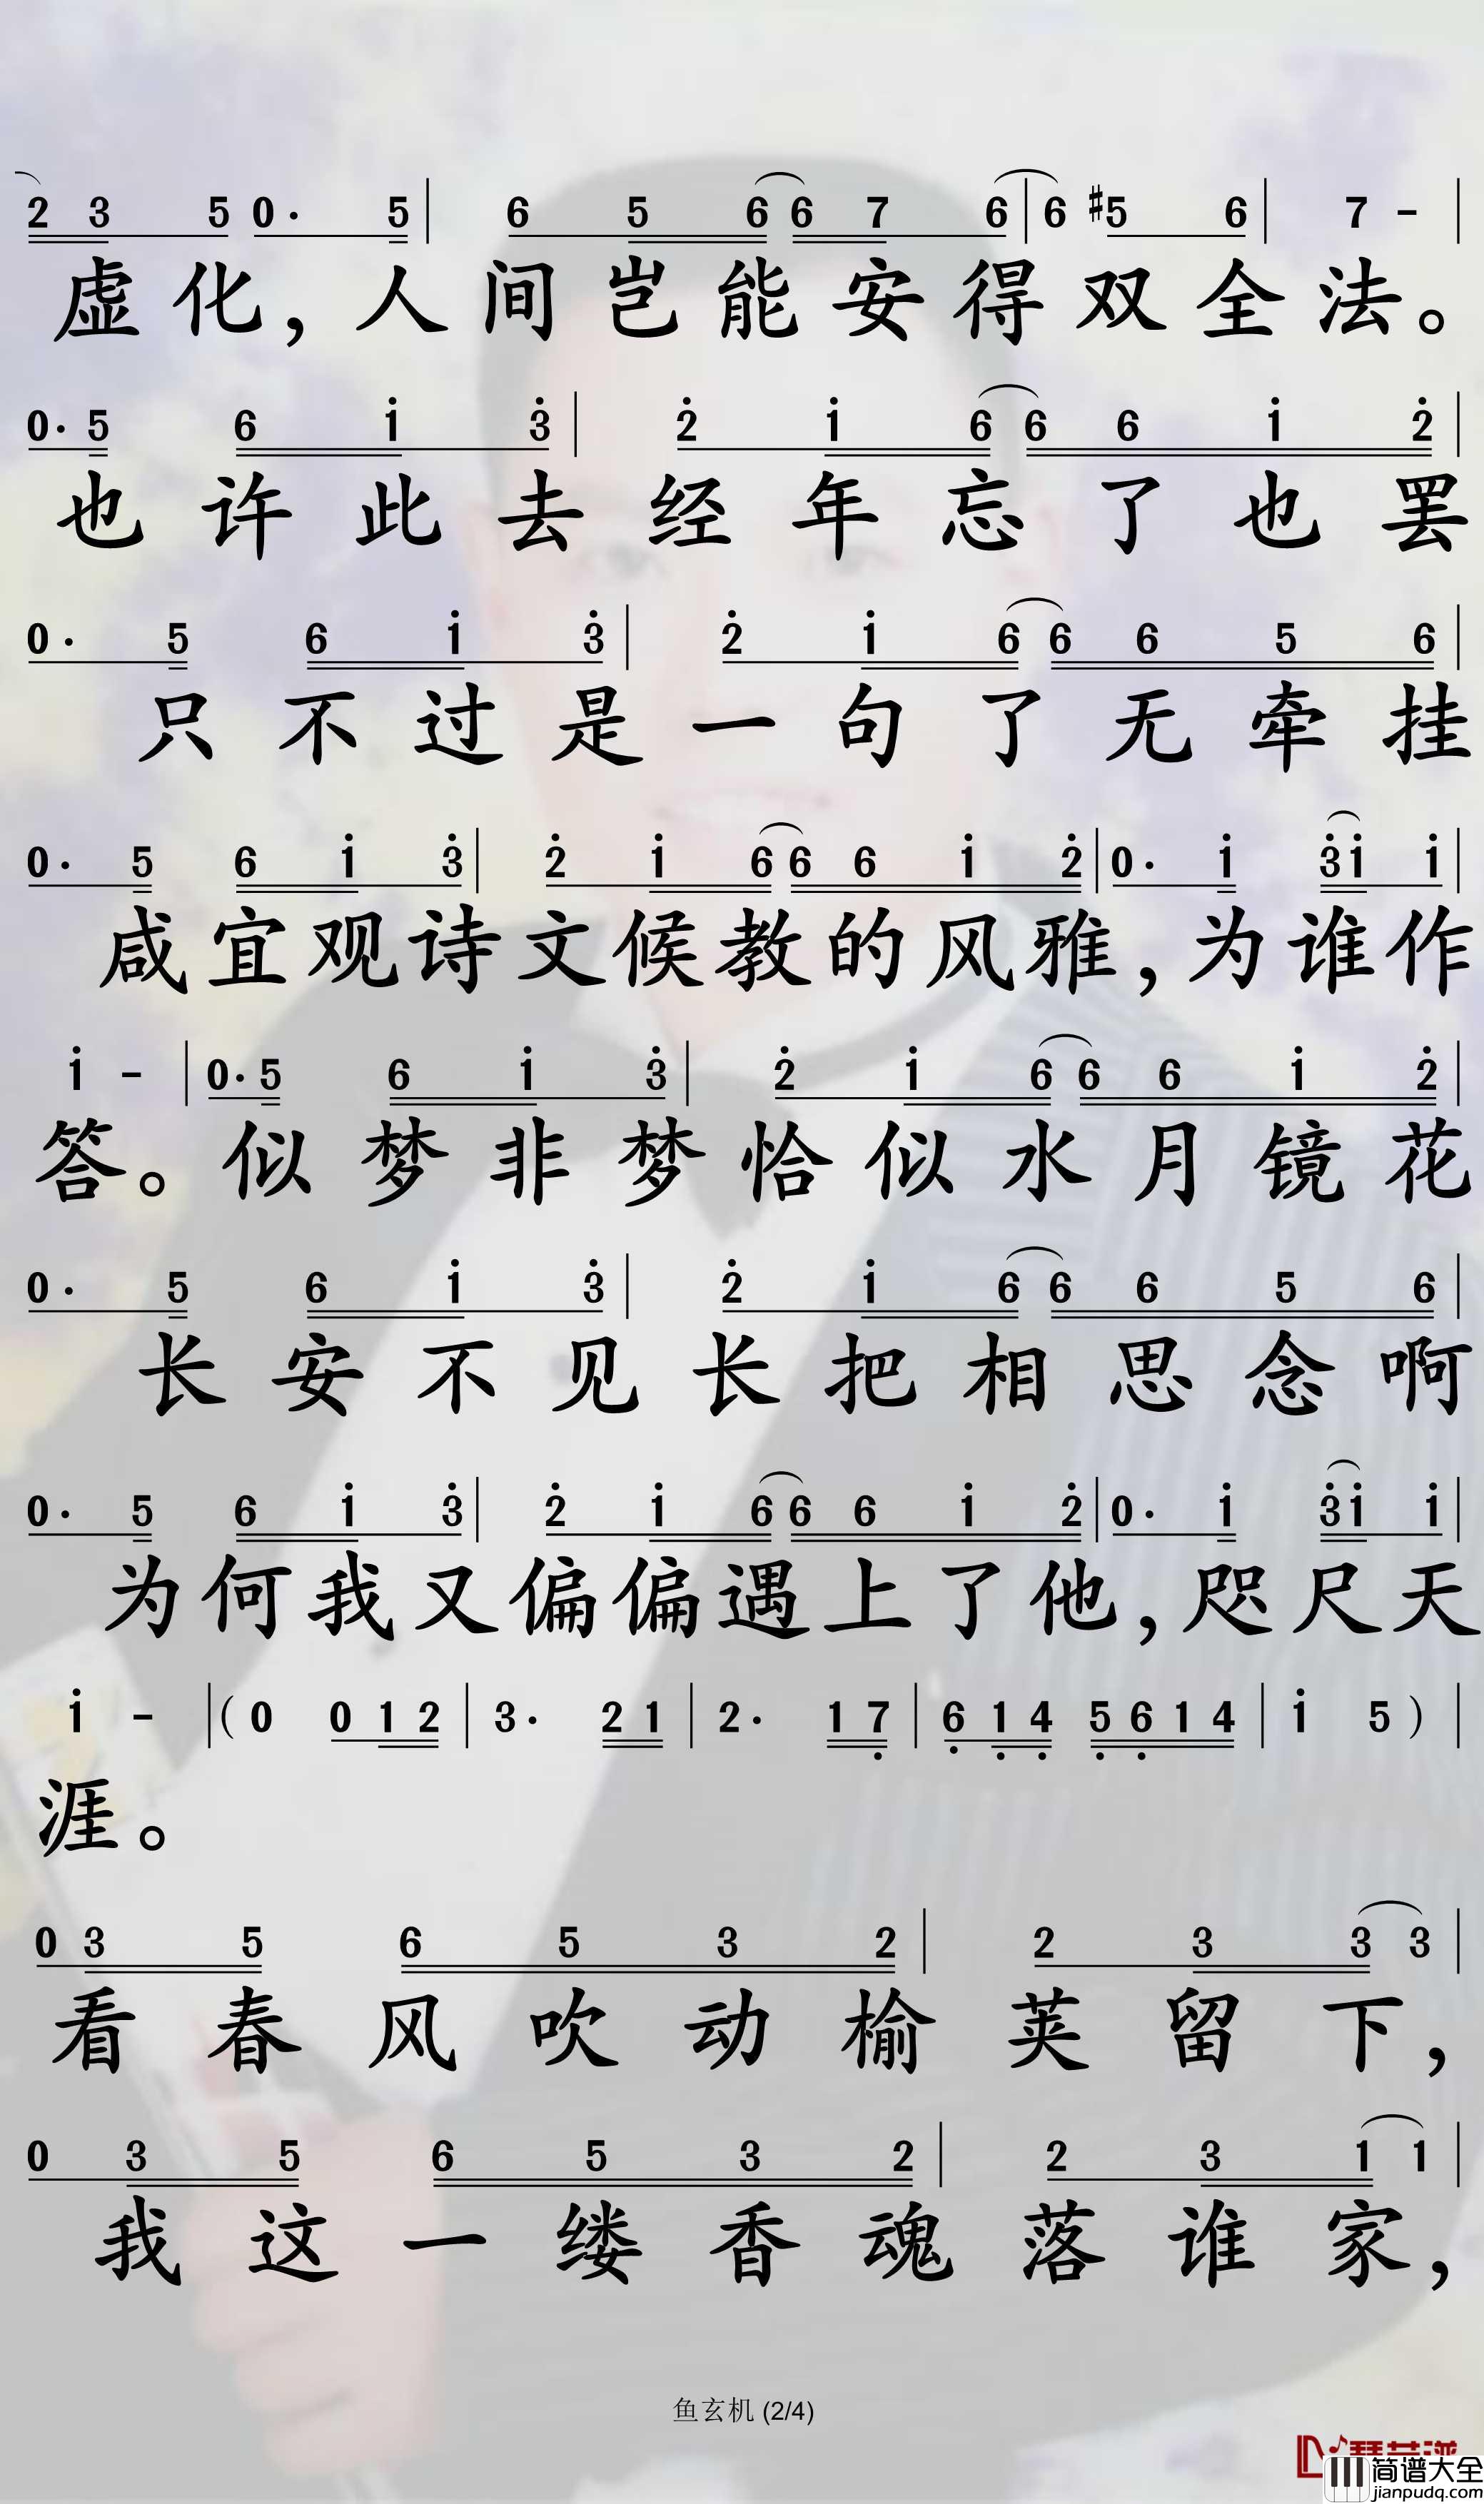 2 3 5 0· 5 | 6 5 6 6 7 6 | 6 #5 6 | 7 - |
虚化,人间岂能安得双全法。
0· 5 6 i 3 | 2 i 6 6 6 i 2 |
也许此去经年忘了也罢
0· 5 6 i 3 | 2 i 6 6 6 5 6 |
只不过是一句了无牵挂
0· 5 6 i 3 | 2 i 6 6 6 i 2 | 0· i 3 i i |
咸宜观诗文候教的风雅,为谁作
i - | 0· 5 6 i 3 | 2 i 6 6 6 i 2 |
答。似梦非梦恰似水月镜花
0· 5 6 i 3 | 2 i 6 6 6 5 6 |
长安不见长把相思念啊
0· 5 6 i 3 | 2 i 6 6 6 i 2 | 0· i 3 i i |
为何我又偏偏遇上了他,咫尺天
i - | ( 0 0 1 2 | 3· 2 1 | 2· 1 7 | 6 1 4 5 6 1 4 | i 5 ) |
涯。
0 3 5 6 5 3 2 | 2 3 3 3 |
看春风吹动榆荚留下,
0 3 5 6 5 3 2 | 2 3 1 1 |
我这一缕香魂落谁家,
鱼玄机 (2/4)
简谱大全
jianpudq.com